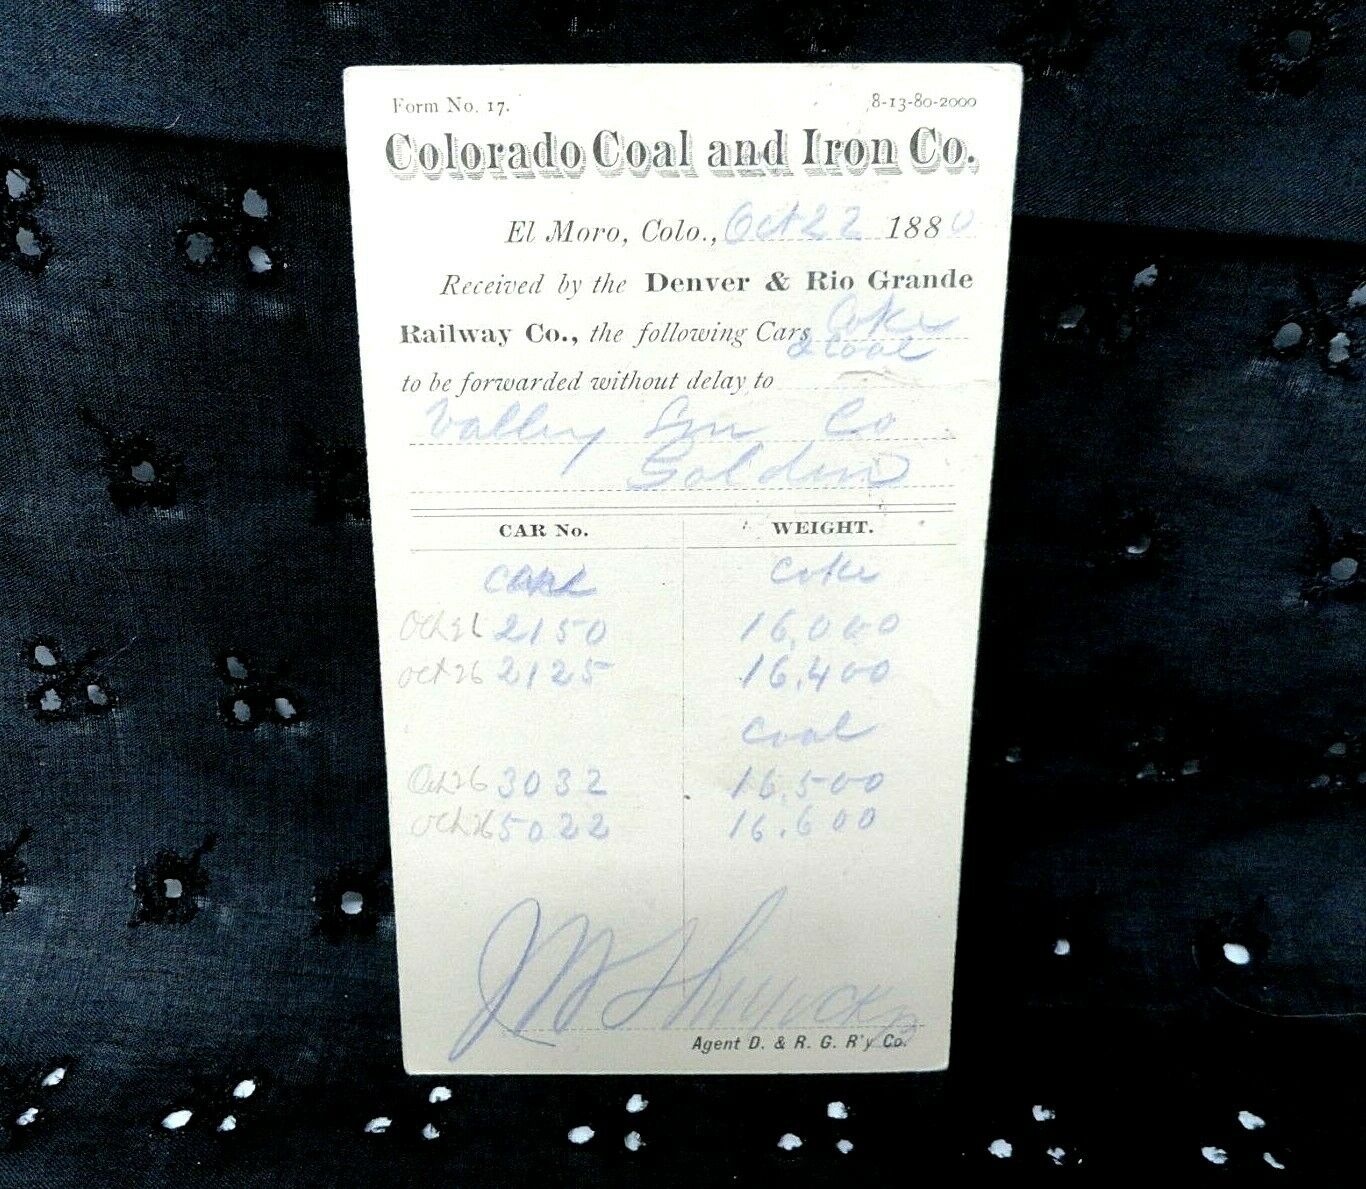 Form No. 17. 8-13-80-2000
Colorado Coal and Iron Co.
El Moro, Colo., Oct 22 1880
Received by the Denver & Rio Grande
Railway Co., the following Cars Coke
& Coal
to be forwarded without delay to
Valley Co
Golden
CAR No. WEIGHT.
Coke
2150 16,000
Oct 26 2125 16,400
Coal
Oct 26 3032 16,500
Oct 26 5022 16,600
Agent D. & R. G. R'y Co.